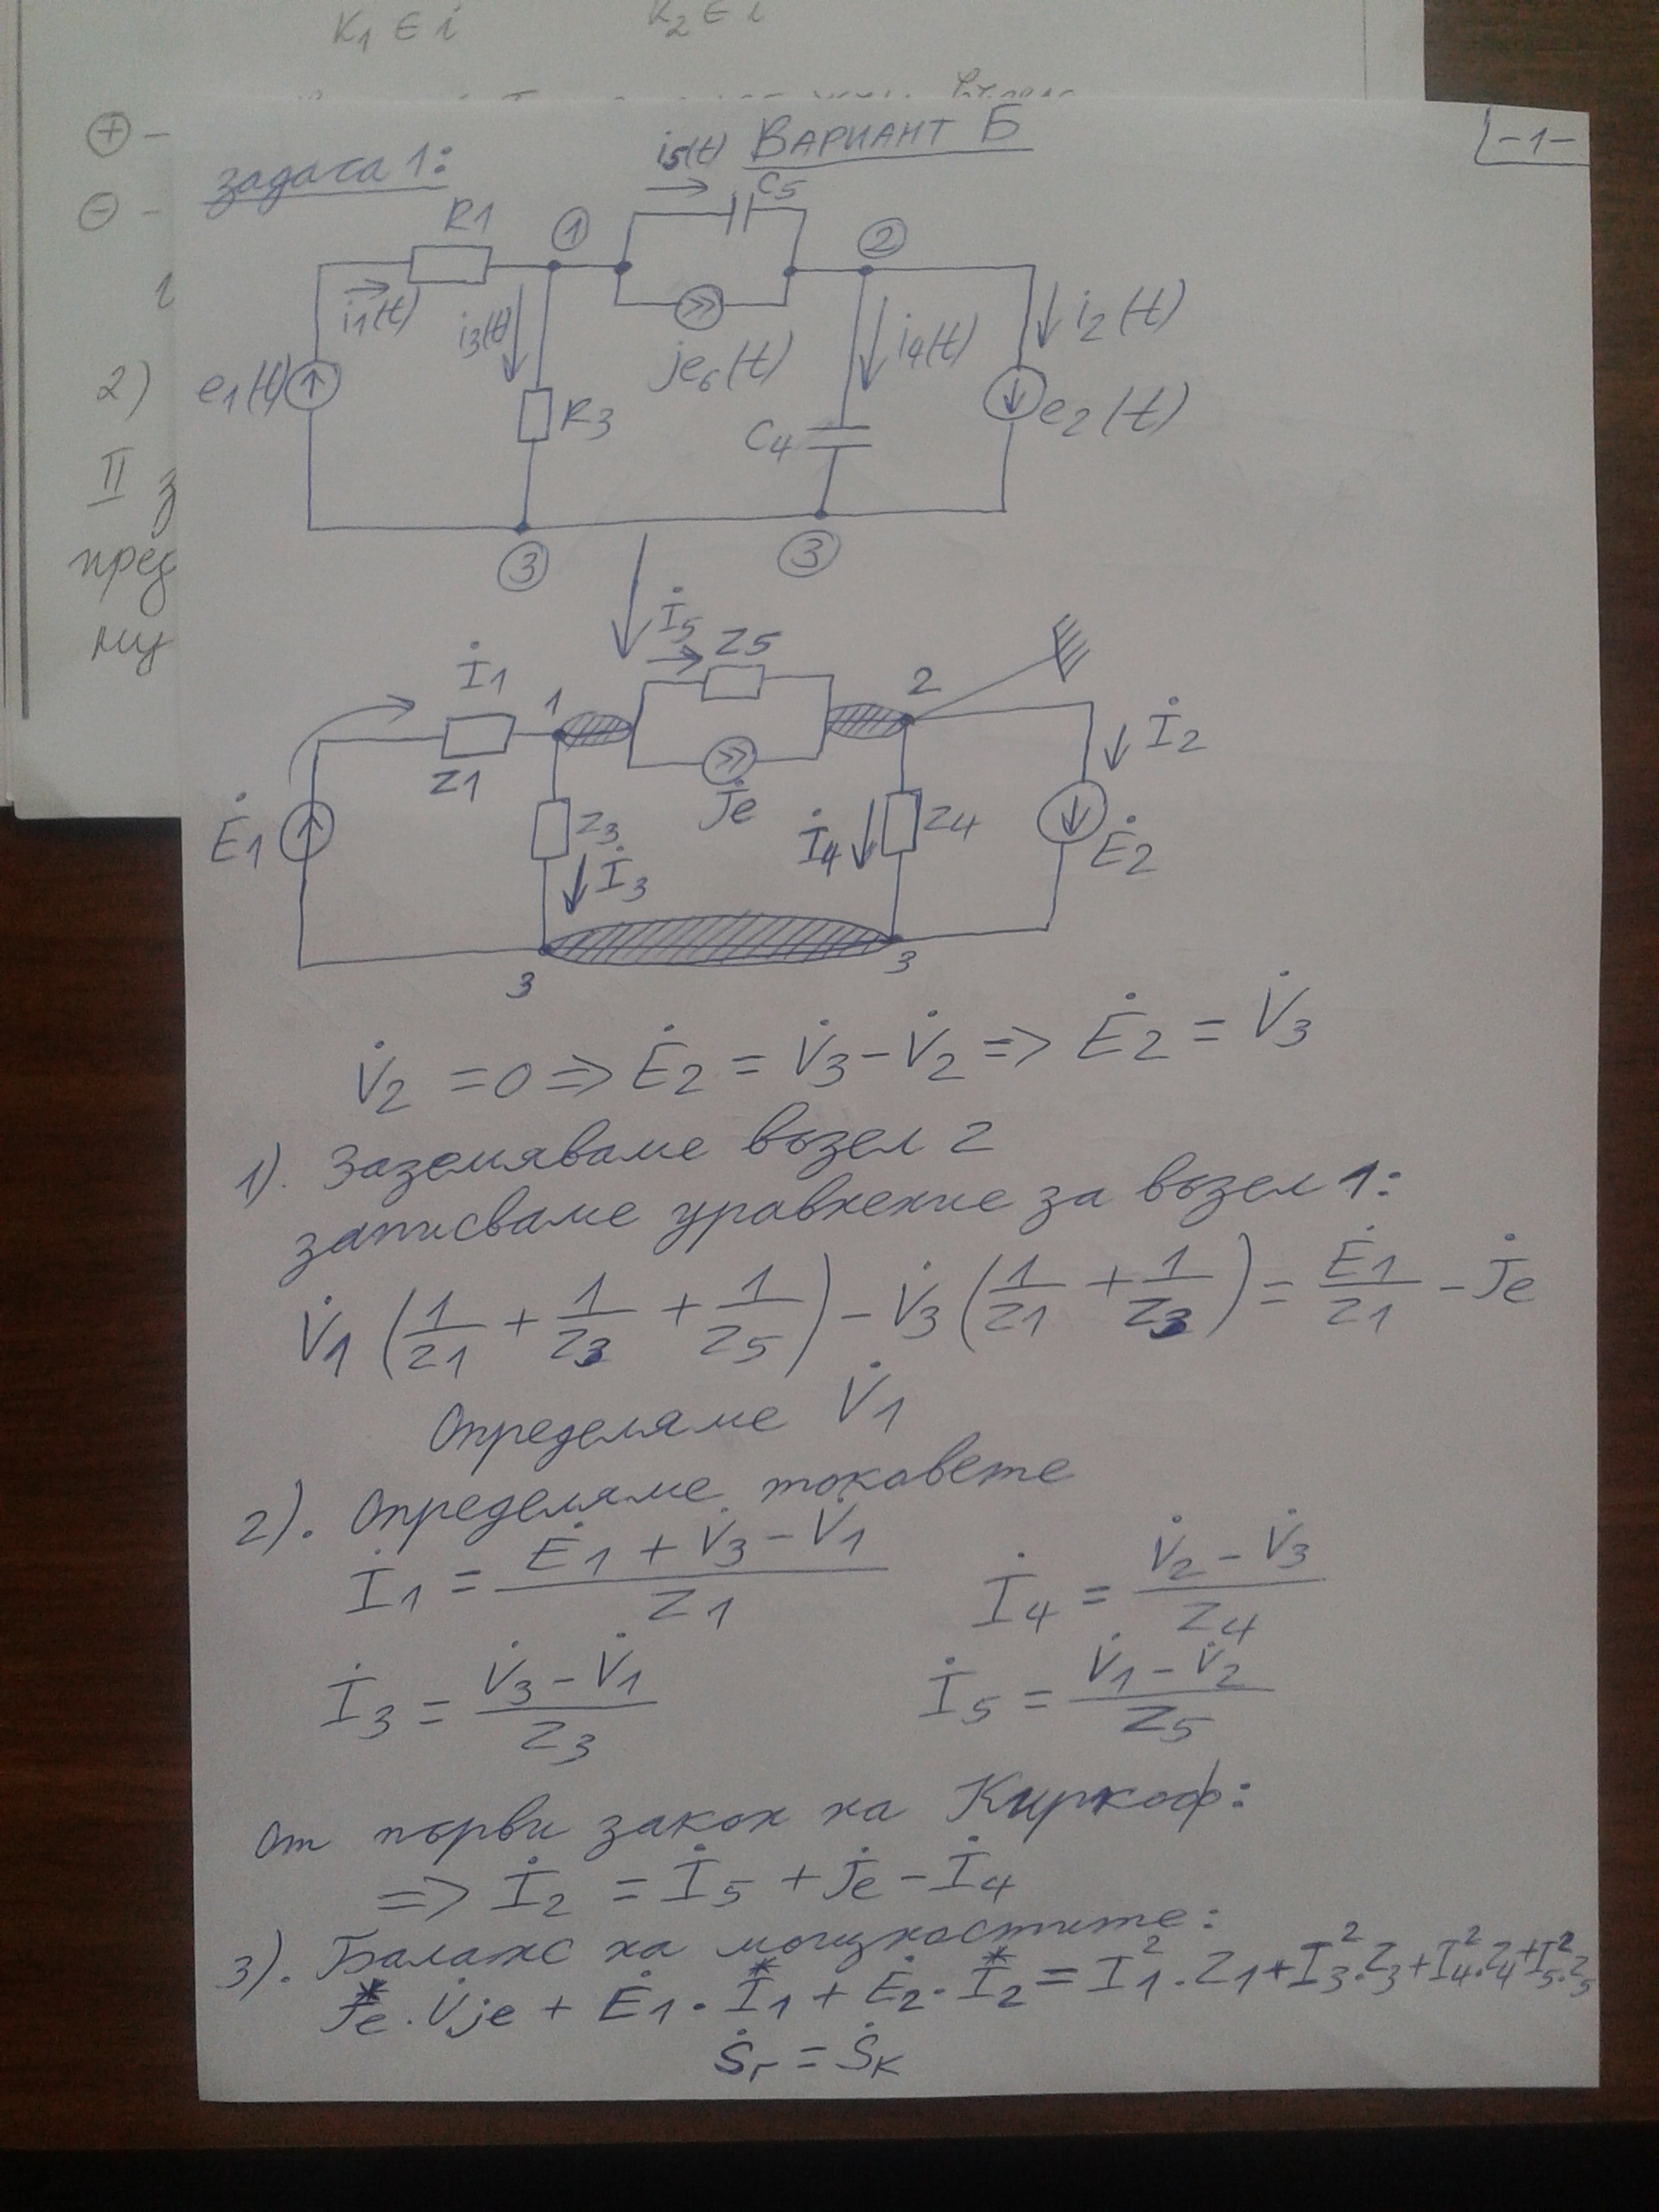 K1 ∈ i K2 ∈ i
⊕ –
⊖ –
2)
II з
пред
му
-1-
Вариант Б
задача 1:
i5(t)
C5
R1
①
②
i1(t)
i3(t)
je6(t)
i4(t)
i2(t)
e1(t)
R3
C4
e2(t)
③
③
İ5
Z5
İ1
1
2
Z1
J̇e
İ2
Ė1
Z3
İ3
İ4
Z4
Ė2
3
3
V̇2 = 0 => Ė2 = V̇3 - V̇2 => Ė2 = V̇3
1). Заземяваме възел 2
записваме уравнение за възел 1:
V̇1 (1/Z1 + 1/Z3 + 1/Z5) - V̇3 (1/Z1 + 1/Z3) = Ė1/Z1 - J̇e
Определяме V̇1
2). Определяме токовете
İ1 = (Ė1 + V̇3 - V̇1)/Z1 İ4 = (V̇2 - V̇3)/Z4
İ3 = (V̇3 - V̇1)/Z3 İ5 = (V̇1 - V̇2)/Z5
От първи закон на Киркоф:
=> İ2 = İ5 + J̇e - İ4
3). Баланс на мощностите:
J*e . V̇je + Ė1 . I*1 + Ė2 . I*2 = I1² . Z1 + I3² . Z3 + I4² . Z4 + I5² . Z5
Ṡг = Ṡк